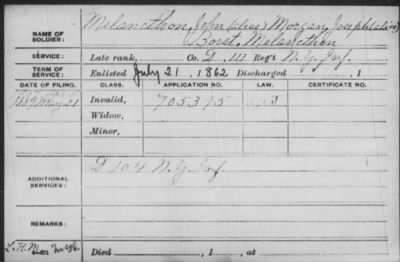 NAME OF SOLDIER: Melancthon, John (alias) Morgan, Joseph (alias)
Borst, Melancthon
SERVICE: Late rank, Co. D, 111 Reg't N.Y. Inf.
TERM OF SERVICE: Enlisted July 21, 1862 Discharged , 1
DATE OF FILING. CLASS. APPLICATION NO. LAW. CERTIFICATE NO.
1889 May 21 Invalid, 705375
Widow,
Minor,
ADDITIONAL SERVICES: D 104 N.Y. Inf.
REMARKS:
Died , 1 , at